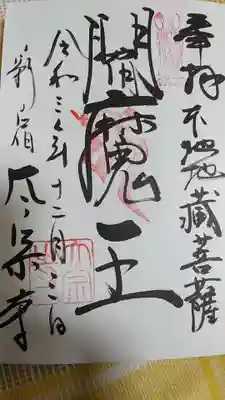 奉拝
不動地蔵菩薩
閻魔王
令和三年十二月三日
新宿 太宗寺